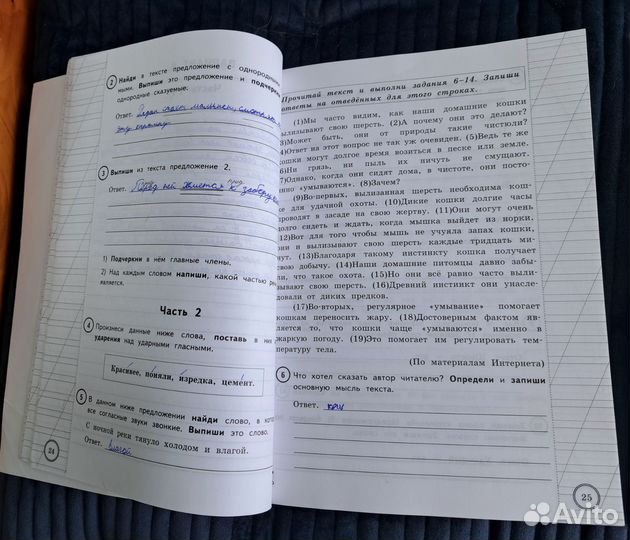 2 Найди в тексте предложение с однородными
ными. Выпиши это предложение и подчеркни
однородные сказуемые.
Ответ.
эту картину
3 Выпиши из текста предложение 2.
Ответ. Перед ней жмется к
1) Подчеркни в нём главные члены.
2) Над каждым словом напиши, какой частью речи
является.
Часть 2
4 Произнеси данные ниже слова, поставь в них
ударения над ударными гласными.
Красивее, поняли, изредка, цемент.
5 В данном ниже предложении найди слово, в кото
все согласные звуки звонкие. Выпиши это слово.
С ночной реки тянуло холодом и влагой.
Ответ. влагой
24
Прочитай текст и выполни задания 6–14. Запиши
ответы на отведённых для этого строках.
(1)Мы часто видим, как наши домашние кошки
вылизывают свою шерсть. (2)А почему они это делают?
(3)Может быть, они от природы такие чистюли?
(4)Ответ на этот вопрос не так уж очевиден. (5)Ведь те же
кошки могут долгое время возиться в песке или земле.
(6)Ни грязь, ни пыль их ничуть не смущают.
(7)Однако, когда они сидят дома, в чистоте, они посто-
янно «умываются». (8)Зачем?
(9)Во-первых, вылизанная шерсть необходима кош-
ке для удачной охоты. (10)Дикие кошки долгие часы
проводят в засаде на свою жертву. (11)Они могут очень
долго сидеть и ждать, когда мышка выйдет из норки.
(12)Вот для того чтобы мышь не учуяла запах кошки,
они и вылизывают свою шерсть каждые тридцать ми-
нут. (13)Благодаря такому инстинкту кошка получает
свою добычу. (14)Наши домашние питомцы давно забы-
ли, что такое охота. (15)Но они всё равно часто выли-
зывают свою шерсть. (16)Древний инстинкт они унасле-
довали от диких предков.
(17)Во-вторых, регулярное «умывание» помогает
кошкам переносить жару. (18)Достоверным фактом яв-
ляется то, что кошки чаще «умываются» именно в
жаркую погоду. (19)Это помогает им регулировать тем-
пературу тела.
(По материалам Интернета)
6 Что хотел сказать автор читателю? Определи и запиши
основную мысль текста.
Ответ.
25
Avito